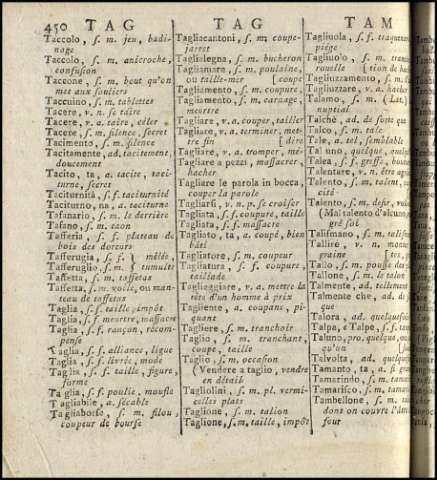 450 TAG
TAG
TAM
Taccolo, s. m. jeu, badi-
nage
Taccolo, s. m. anicroche,
confusion
Taccone, s. m. bout qu'on
met aux souliers
Taccuino, s. m. tablettes
Tacere, v. n. se taire
Tacere, v. a. taire, céler
Tacere, s. m. silence, secret
Tacimento, s. m. silence
Tacitamente, ad. tacitement,
doucement
Tacito, ta, a. tacite, taci-
turne, secret
Taciturnità, s. f. taciturnité
Taciturno, na, a. taciturne
Tafanario, s. m. le derrière
Tafano, s. m. taon
Tafferia, s. f. plateau de
bois des doreurs
Tafferugia, s. f. } mêlée,
Tafferuglio, s. m. } tumulte
Taffetà, s. m. taffetas
Taffetta, s. m. voile, ou man-
teau de taffetas
Taglia, s. f. taille, impôt
Taglia, s. f. meurtre, massacre
Taglia, s. f. rançon, récom-
pense
Taglia, s. f. alliance, ligue
Taglia, s. f. livrée, mode
Taglia, s. f. taille, figure,
forme
Taglia, s. f. poulie, moufle
Tagliabile, a. sécable
Tagliaborse, s. m. filou,
coupeur de bourse
Tagliacantoni, s. m. coupe-
jarret
Taglialegna, s. m. bucheron
Tagliamare, s. m. poulaine,
ou taille-mer [coupe
Tagliamento, s. m. coupure,
Tagliamento, s. m. carnage,
meurtre
Tagliare, v. a. couper, tailler
Tagliare, v. a. terminer, met-
tre fin [dire
Tagliare, v. a. tromper, mé-
Tagliare a pezzi, massacrer,
hacher
Tagliare le parola in bocca,
couper la parole
Tagliarsi, v. n. p. se croiser
Tagliata, s. f. coupure, taille
Tagliata, s. f. massacre
Tagliato, ta, a. coupé, bien
bâti
Tagliatore, s. m. coupeur
Tagliatura, s. f. coupure,
taillade
Taglieggiare, v. a. mettre la
tête d'un homme à prix
Tagliente, a. coupant, pi-
quant
Tagliere, s. m. tranchoir
Taglio, s. m. tranchant,
coupe, taille
Taglio, s. m. occasion
(Vendere a taglio, vendre
en détail
Tagliolini, s. m. pl. vermi-
celles plats
Taglione, s. m. talion
Taglione, s. m. taille, impôt
Tagliuola, s. f.
piége
Tagliuolo, s. m.
rouelle [tion de
Tagliuzzamento, s. m.
Tagliuzzare, v. a.
Talamo, s. m. (Lat.)
nuptial
Talchè, ad. de sorte que
Talco, s. m. tale
Tale, a. tel, semblable
Tal uno, quelque,
Talea, s. f. greffe,
Talentare, v. n. être
Talento, s. m. talent,
cité
Talento, s. m. desir,
(Mal talento d'alcuno,
gré soi
Talismano, s. m.
Tallire, v. n. monter
graine [tes,
Tallo, s. m. pousse
Tallone, s. m. talon
Talmente, ad. tellement
Talmente che, ad. de
que
Talora, ad. quelquefois
Talpa, e Talpe, s. f.
Taluno, pro. quelque,
qu'un
Talvolta, ad. quelque
Tamanto, ta, a.
Tamarindo, s. m.
Tamarisco, s. m.
Tambellone, s. m.
dont on couvre
four